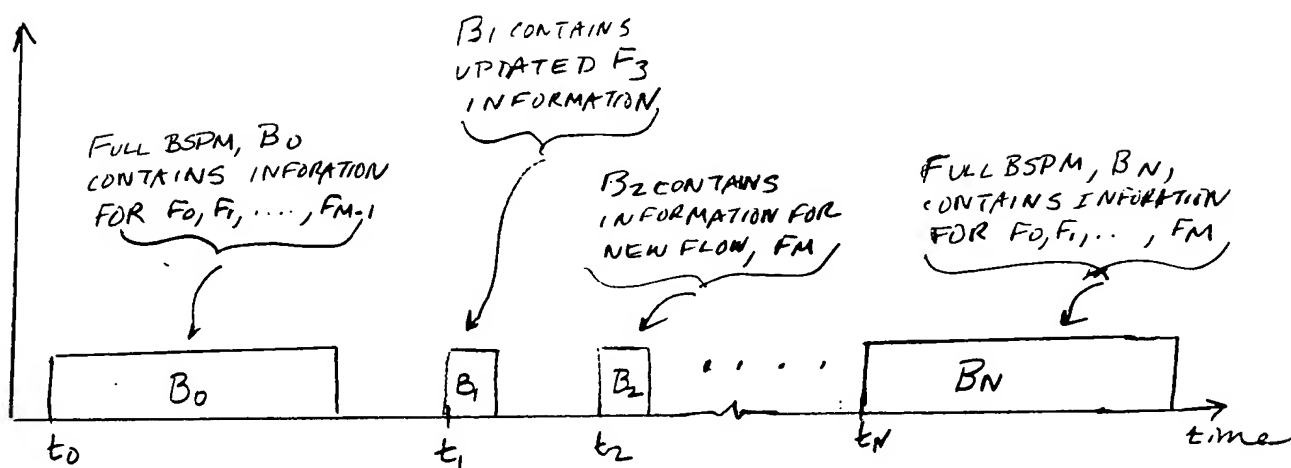 B1 CONTAINS
UPDATED F3
INFORMATION
FULL BSPM, B0
CONTAINS INFORATION
FOR F0, F1, ...., FM-1
B2 CONTAINS
INFORMATION FOR
NEW FLOW, FM
FULL BSPM, BN,
CONTAINS INFORATION
FOR F0, F1, .. , FM
B0
B1
B2
. . . .
BN
t0
t1
t2
tN
time